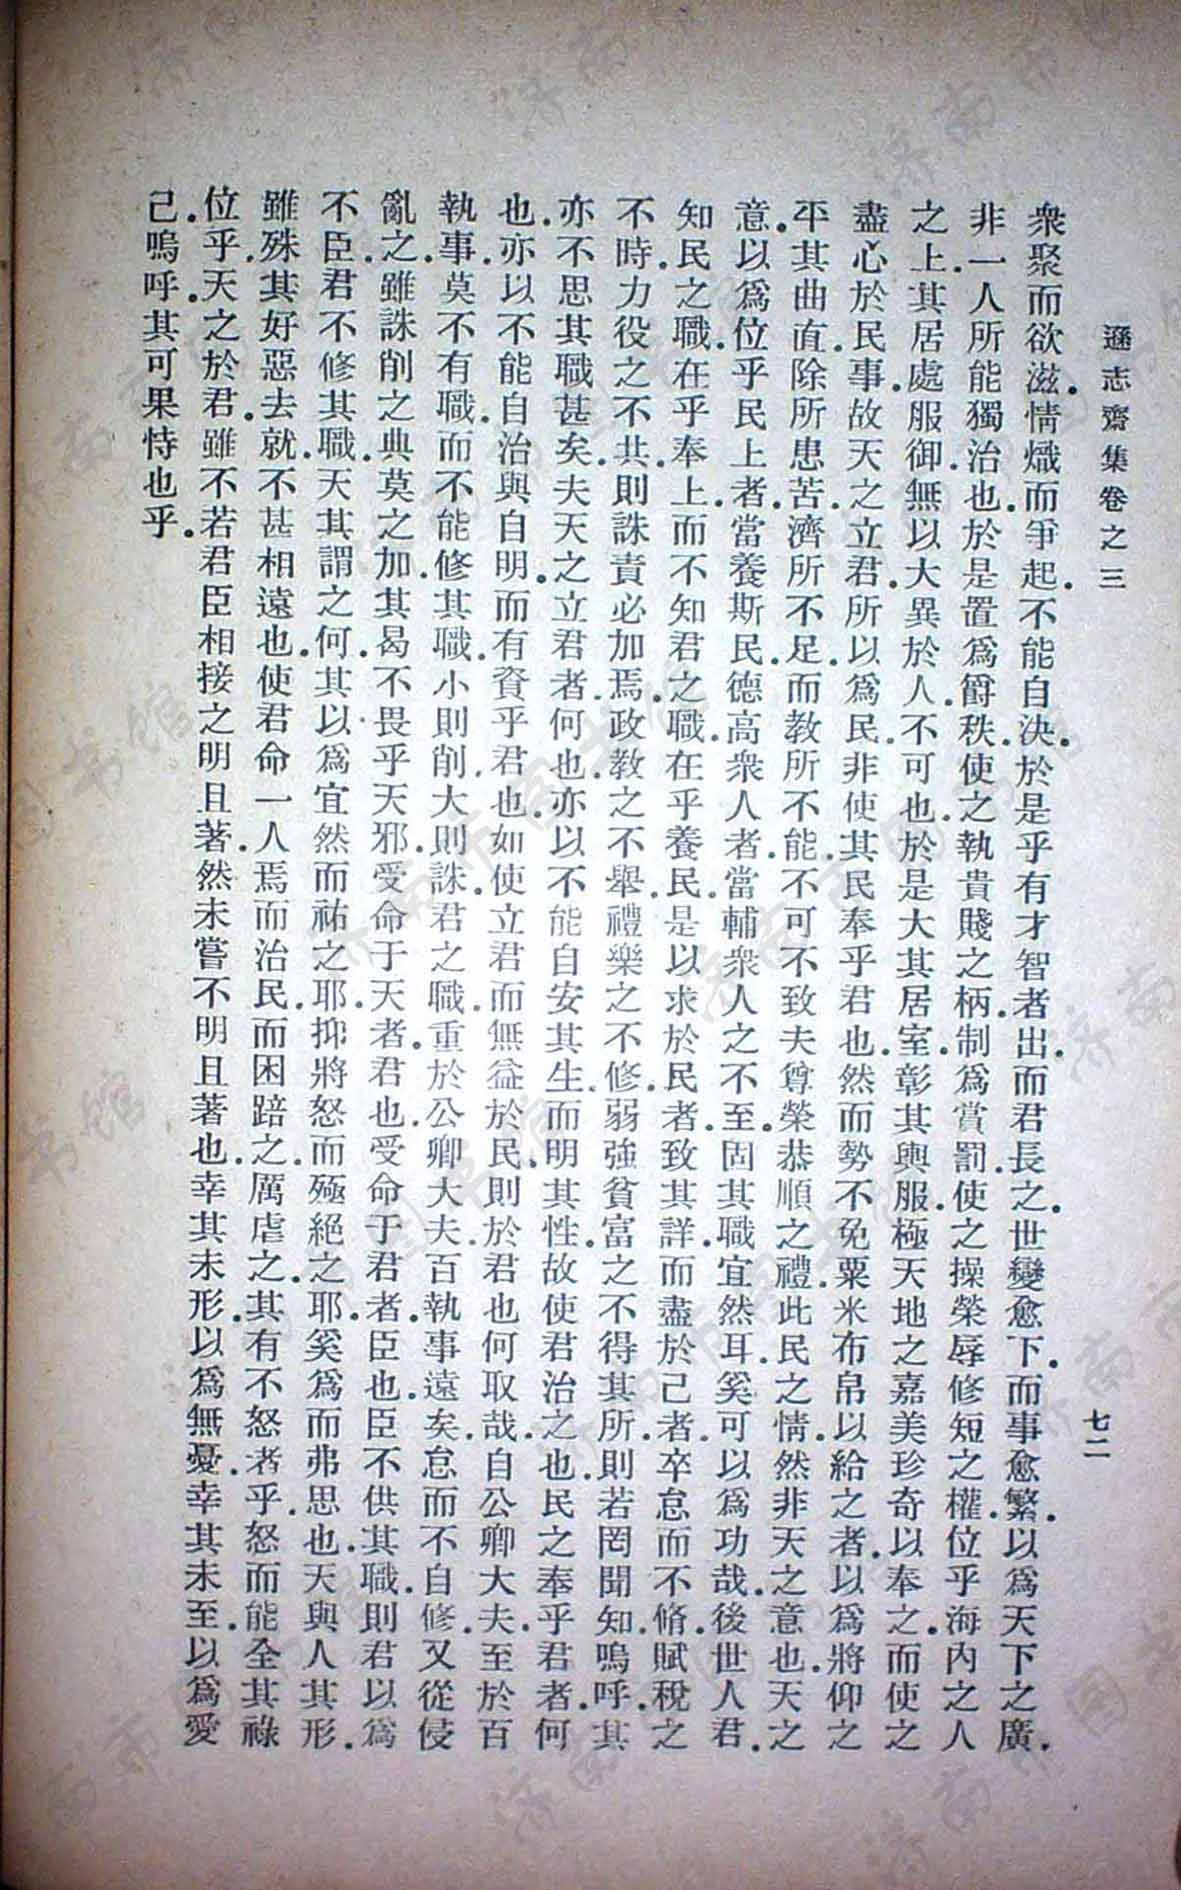 遜志齋集卷之三
七二
衆聚而欲滋.情熾而爭起.不能自決.於是乎有才智者出.而君長之.世變愈下.而事愈繁.以爲天下之廣.
非一人所能獨治也.於是置爲爵秩.使之執貴賤之柄.制爲賞罰.使之操榮辱修短之權.位乎海內之人
之上.其居處服御.無以大異於人.不可也.於是大其居室.彰其輿服.極天地之嘉美珍奇以奉之.而使之
盡心於民事.故天之立君.所以爲民.非使其民奉乎君也.然而勢不免粟米布帛以給之者.以爲將仰之
平其曲直.除所患苦.濟所不足.而教所不能.不可不致夫尊榮恭順之禮.此民之情.然非天之意也.天之
意.以爲位乎民上者.當養斯民.德高衆人者.當輔衆人之不至.固其職宜然耳.奚可以爲功哉.後世人君.
知民之職.在乎奉上.而不知君之職.在乎養民.是以求於民者.致其詳.而盡於己者.卒怠而不脩.賦稅之
不時.力役之不共.則誅責必加焉.政教之不舉.禮樂之不修.弱強貧富之不得其所.則若罔聞知.嗚呼.其
亦不思其職甚矣.夫天之立君者.何也.亦以不能自安其生.而明其性.故使君治之也.民之奉乎君者.何
也.亦以不能自治與自明.而有資乎君也.如使立君而無益於民.則於君也何取哉.自公卿大夫.至於百
執事.莫不有職.而不能修其職.小則削.大則誅.君之職.重於公卿大夫.百執事遠矣.怠而不自修.又從侵
亂之.雖誅削之典莫之加.其曷不畏乎天邪.受命于天者.君也.受命于君者.臣也.臣不供其職.則君以爲
不臣.君不修其職.天其謂之何.其以爲宜然而祐之耶.抑將怒而殛絕之耶.奚爲而弗思也.天與人其形.
雖殊.其好惡去就.不甚相遠也.使君命一人焉而治民.而困踣之.厲虐之.其有不怒者乎.怒而能全其祿
位乎.天之於君.雖不若君臣相接之明且著.然未嘗不明且著也.幸其未形.以爲無憂.幸其未至.以爲愛
己.嗚呼.其可果恃也乎.